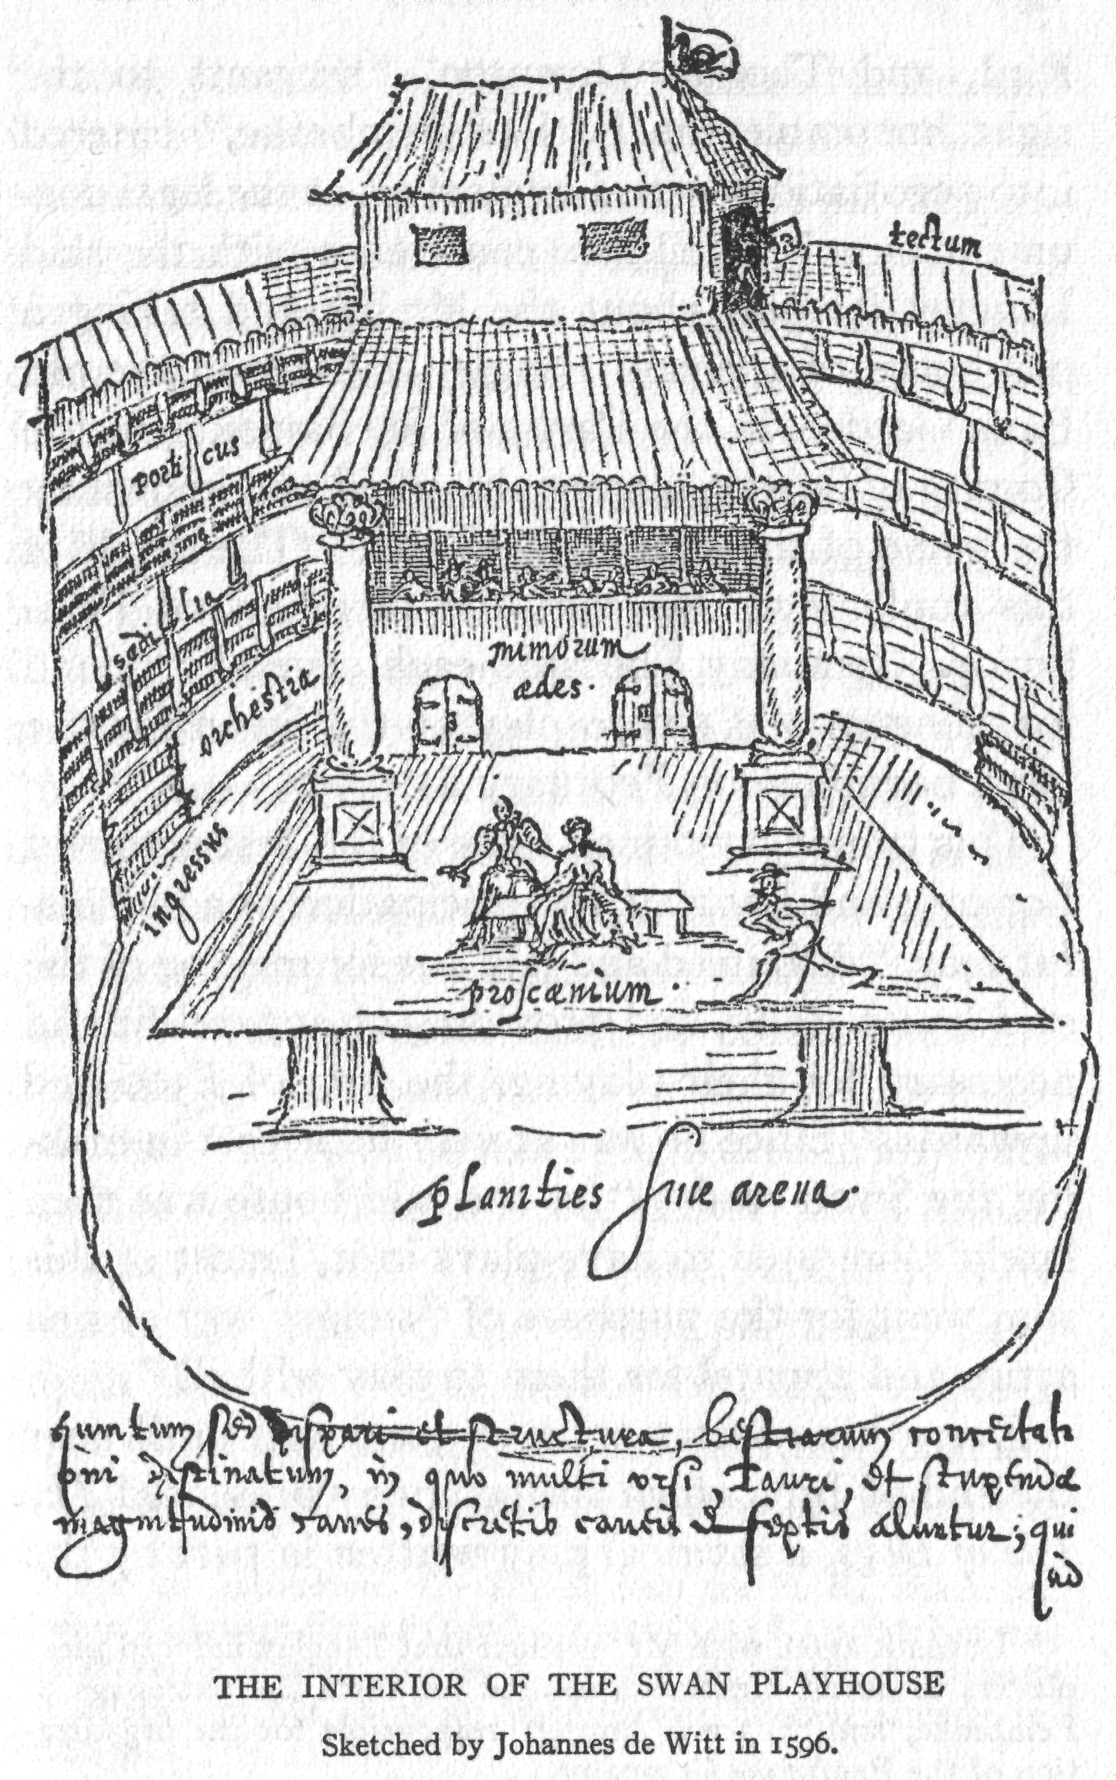 tectum
porticus
sedilia
orchestra
mimorum
ædes.
ingressus
proscænium.
planities siue arena.
quintum sed dispari et structura, bestiarum concertati
oni destinatum, in quo multi ursi, Tauri, et stupendæ
magnitudinis canes, discretis caueis & septis aluntur; qui
ad
THE INTERIOR OF THE SWAN PLAYHOUSE
Sketched by Johannes de Witt in 1596.